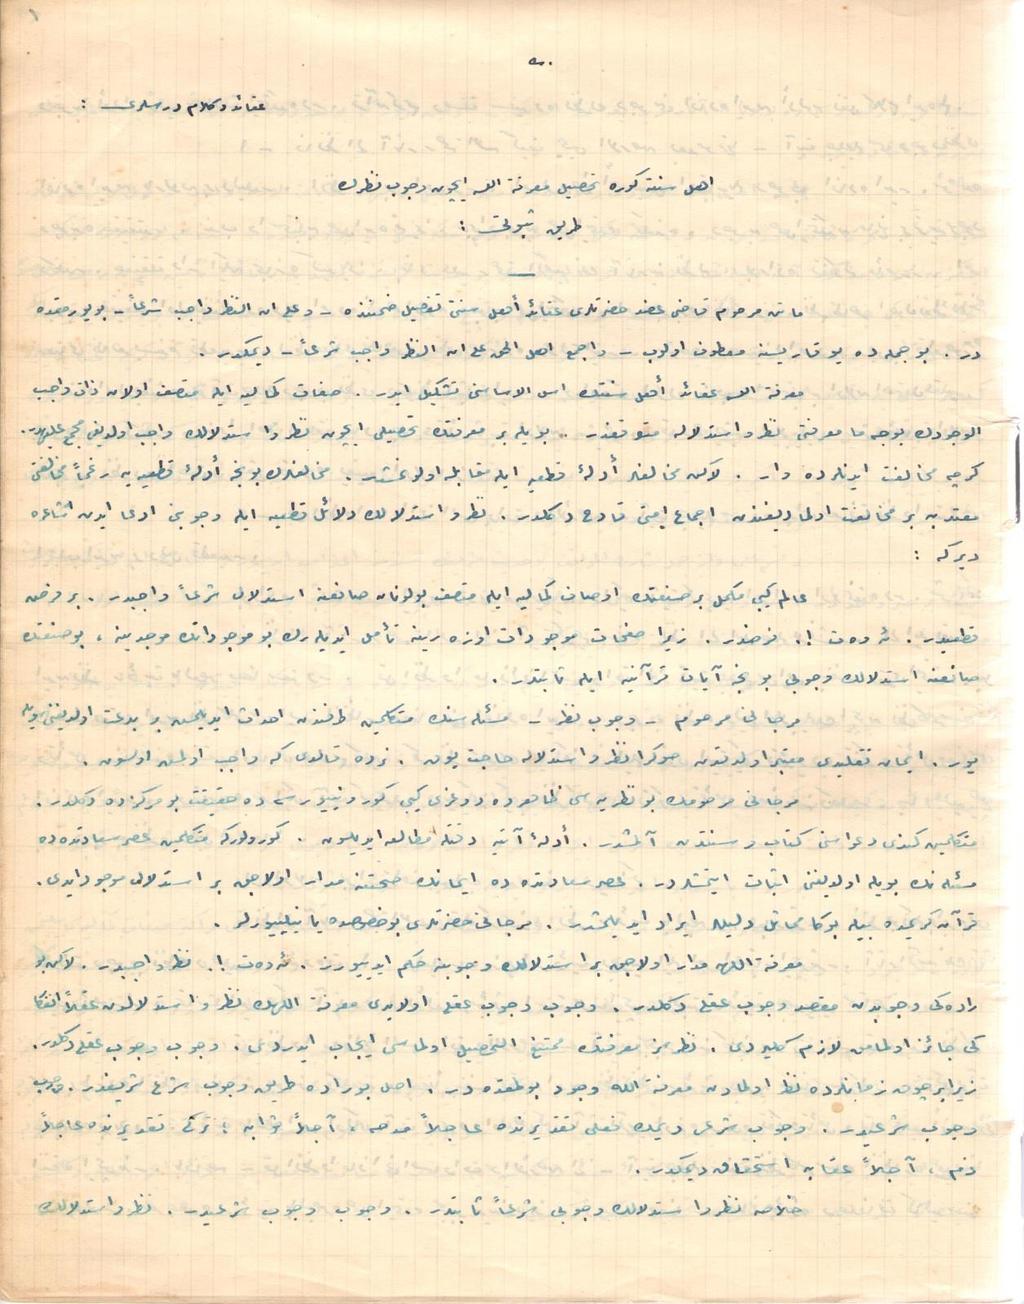 ١
عقائد وكلام درسلرى :
اهل سنته كوره تحصيل معرفة الله ايچون وجوب نظرك
طريق ثبوتى :
ماتن مرحوم قاضى عضد حضرتلرى عقائد أهل سنتى تفصيل ضمننده – وعلى ان النظر واجب شرعاً – بويورمقده
در . بو جمله ده يوقاريسنه معطوف اولوب – واجمع اهل الحق على ان النظر واجب شرعاً – ديمكدر .
معرفة الله عقائد أهل سنتك اس الاساسنى تشكيل ايدر . صفات كماليه ايله متصف اولان ذات واجب
الوجودك بوجه ما معرفتى نظر واستدلاله متوقفدر . بويله بر معرفتك تحصيلى ايچون نظر واستدلالك واجب اولديغى مجمع عليهدر.
كرچه مخالفت ايدنلرده وار . لاكن مخالفلر أدلۀ قطعيه ايله مقابله اولونمشدر . مخالفلرك بونجه أدلۀ قطعيه يه رغماً مخالفتى
معتد به بر مخالفت اولماديغندن اجماع امتى قادح دكلدر . نظر واستدلالك دلائل قطعيه ايله وجوبنى ادعا ايدن اشاعره
ديركه :
عالم كبى مكمل بر صنعتدن اوصاف كماليه ايله متصف بولونان صانعنه استدلال شرعاً واجبدر . بر فرض
قطعيدر . ئه وه ت !. فرضدر . زيرا صفحات موجودات اوزه رينه تأمل ايديله رك بو موجوداتدن موجدينه ، بو صنعتدن
صانعنه استدلالك وجوبى بونجه آيات قرآنيه ايله ثابتدر .
مرجانى مرحوم – وجوب نظر – مسئله سنك متكلمين طرفندن احداث ايديلمش بر بدعت اولديغنى سويله
يور . ايمان تقليدى معتبر اولدقدن صوكرا نظر واستدلاله حاجت يوق . نرده قالدى كه واجب اولمش اولسون .
مرجانى مرحومك بو نظريه سى ظاهرده دوغرى كبى كورونييورسه ده حقيقت بو مركزده دكلدر .
متكلمين كندى دعواسنى كتاب و سنتدن آلمشدر . أدلۀ آتيه دقتله مطالعه ايديلسون . كورولوركه متكلمين عصر سعادتده ده
مسئله نك بويله اولديغنى اثبات ايتمشلردر . عصر سعادتده ده ايمانك صحتنه مدار اولاجق بر استدلال موجود ايدى.
قرآن كريمده بيله بوكا مماثل دليللر ايراد ايديلمشدر . مرجانى حضرتلرى بو خصوصده يا كيلييورلر .
معرفة اللهه مدار اولاجق بر استدلالك وجوبنه حكم ايدييورز . ئه وه ت !. نظر واجبدر . لاكن بو
راده كى وجوبدن مقصد وجوب عقلى دكلدر . وجوب وجوب عقلى اولايدى معرفة اللهك نظر واستدلالدن عقلاً انفكا
كى جائز اولمامق لازم كليردى . نظرسز معرفتك ممتنع التحصيل اولماسى ايجاب ايدردى . وجوب وجوب عقلى دكلدر.
زيرا بر چوق زمانلرده نظر اولمادن معرفة الله وجود بولمقده در . اصل بوراده طريق وجوب شرع شريفدر . وجوب
وجوب شرعيدر . وجوب شرعى ديمك فعلى تقديرنده عاجلاً مدحه ، آجلاً ثوابه ؛ تركى تقديرنده عاجلاً
ذم ، آجلاً عقابه استحقاق ديمكدر .
خلاصه نظر واستدلالك وجوبى شرعاً ثابتدر . وجوب وجوب شرعيدر . نظر واستدلالك